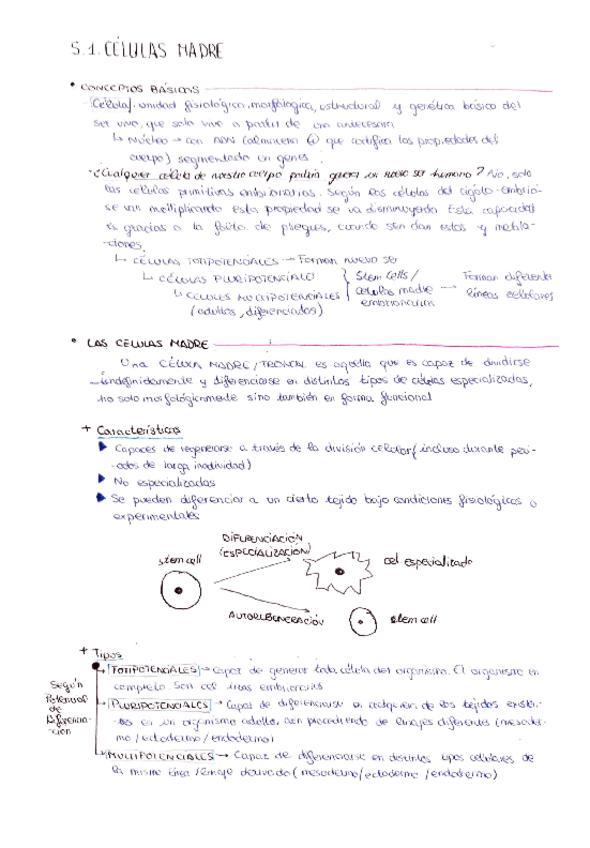 5.1. CÉLULAS MADRE
• CONCEPTOS BÁSICOS
- Célula/. unidad fisiológica, morfológica, estructural y genética básica del
ser vivo, que solo vive a partir de un antecesor.
↳ Núcleo → con ADN (almacena que codifica las propiedades del
cuerpo) segmentado en genes.
- ¿Cualquier célula de nuestro cuerpo podría generar un nuevo ser humano? No, solo
las células primitivas embrionarias. Según las células del cigoto-embrió-
se van multiplicando esta propiedad se va disminuyendo. Esta capacidad
es gracias a la falta de pliegues, cuando se dan estos y metila-
-ciones.
↳ CÉLULAS TOTIPOTENCIALES → Forman nuevo ser
↳ CÉLULAS PLURIPOTENCIALES
↳ CÉLULAS MULTIPOTENCIALES
(adultas, diferenciadas)
Stem Cells /
células madre
embrionarias
→ Forman diferentes
líneas celulares
• LAS CÉLULAS MADRE
Una CÉLULA MADRE/TRONCAL es aquella que es capaz de dividirse
indefinidamente y diferenciarse en distintos tipos de células especializadas,
no solo morfológicamente sino también en forma funcional
+ Características
▶ Capaces de regenerarse a través de la división celular (incluso durante peri-
-odos de larga inactividad)
▶ No especializadas
▶ Se pueden diferenciar a un cierto tejido bajo condiciones fisiológicas o
experimentales
stem cell
DIFERENCIACIÓN
(ESPECIALIZACIÓN)
cel especializada
AUTORREGENERACIÓN
stem cell
+ Tipos
Según
Potencial
de
Diferencia-
-ción
TOTIPOTENCIALES → Capaz de generar toda célula del organismo. El organismo en
completo. Son embrionarias
PLURIPOTENCIALES → Capaz de diferenciarse a cualquiera de los tejidos existen-
-tes en un organismo adulto, aún procediendo de linajes diferentes (mesoder-
mo/ectodermo/endodermo)
MULTIPOTENCIALES → Capaz de diferenciarse en distintos tipos celulares de
la misma línea/linaje derivado (mesodermo/ectodermo/endodermo)